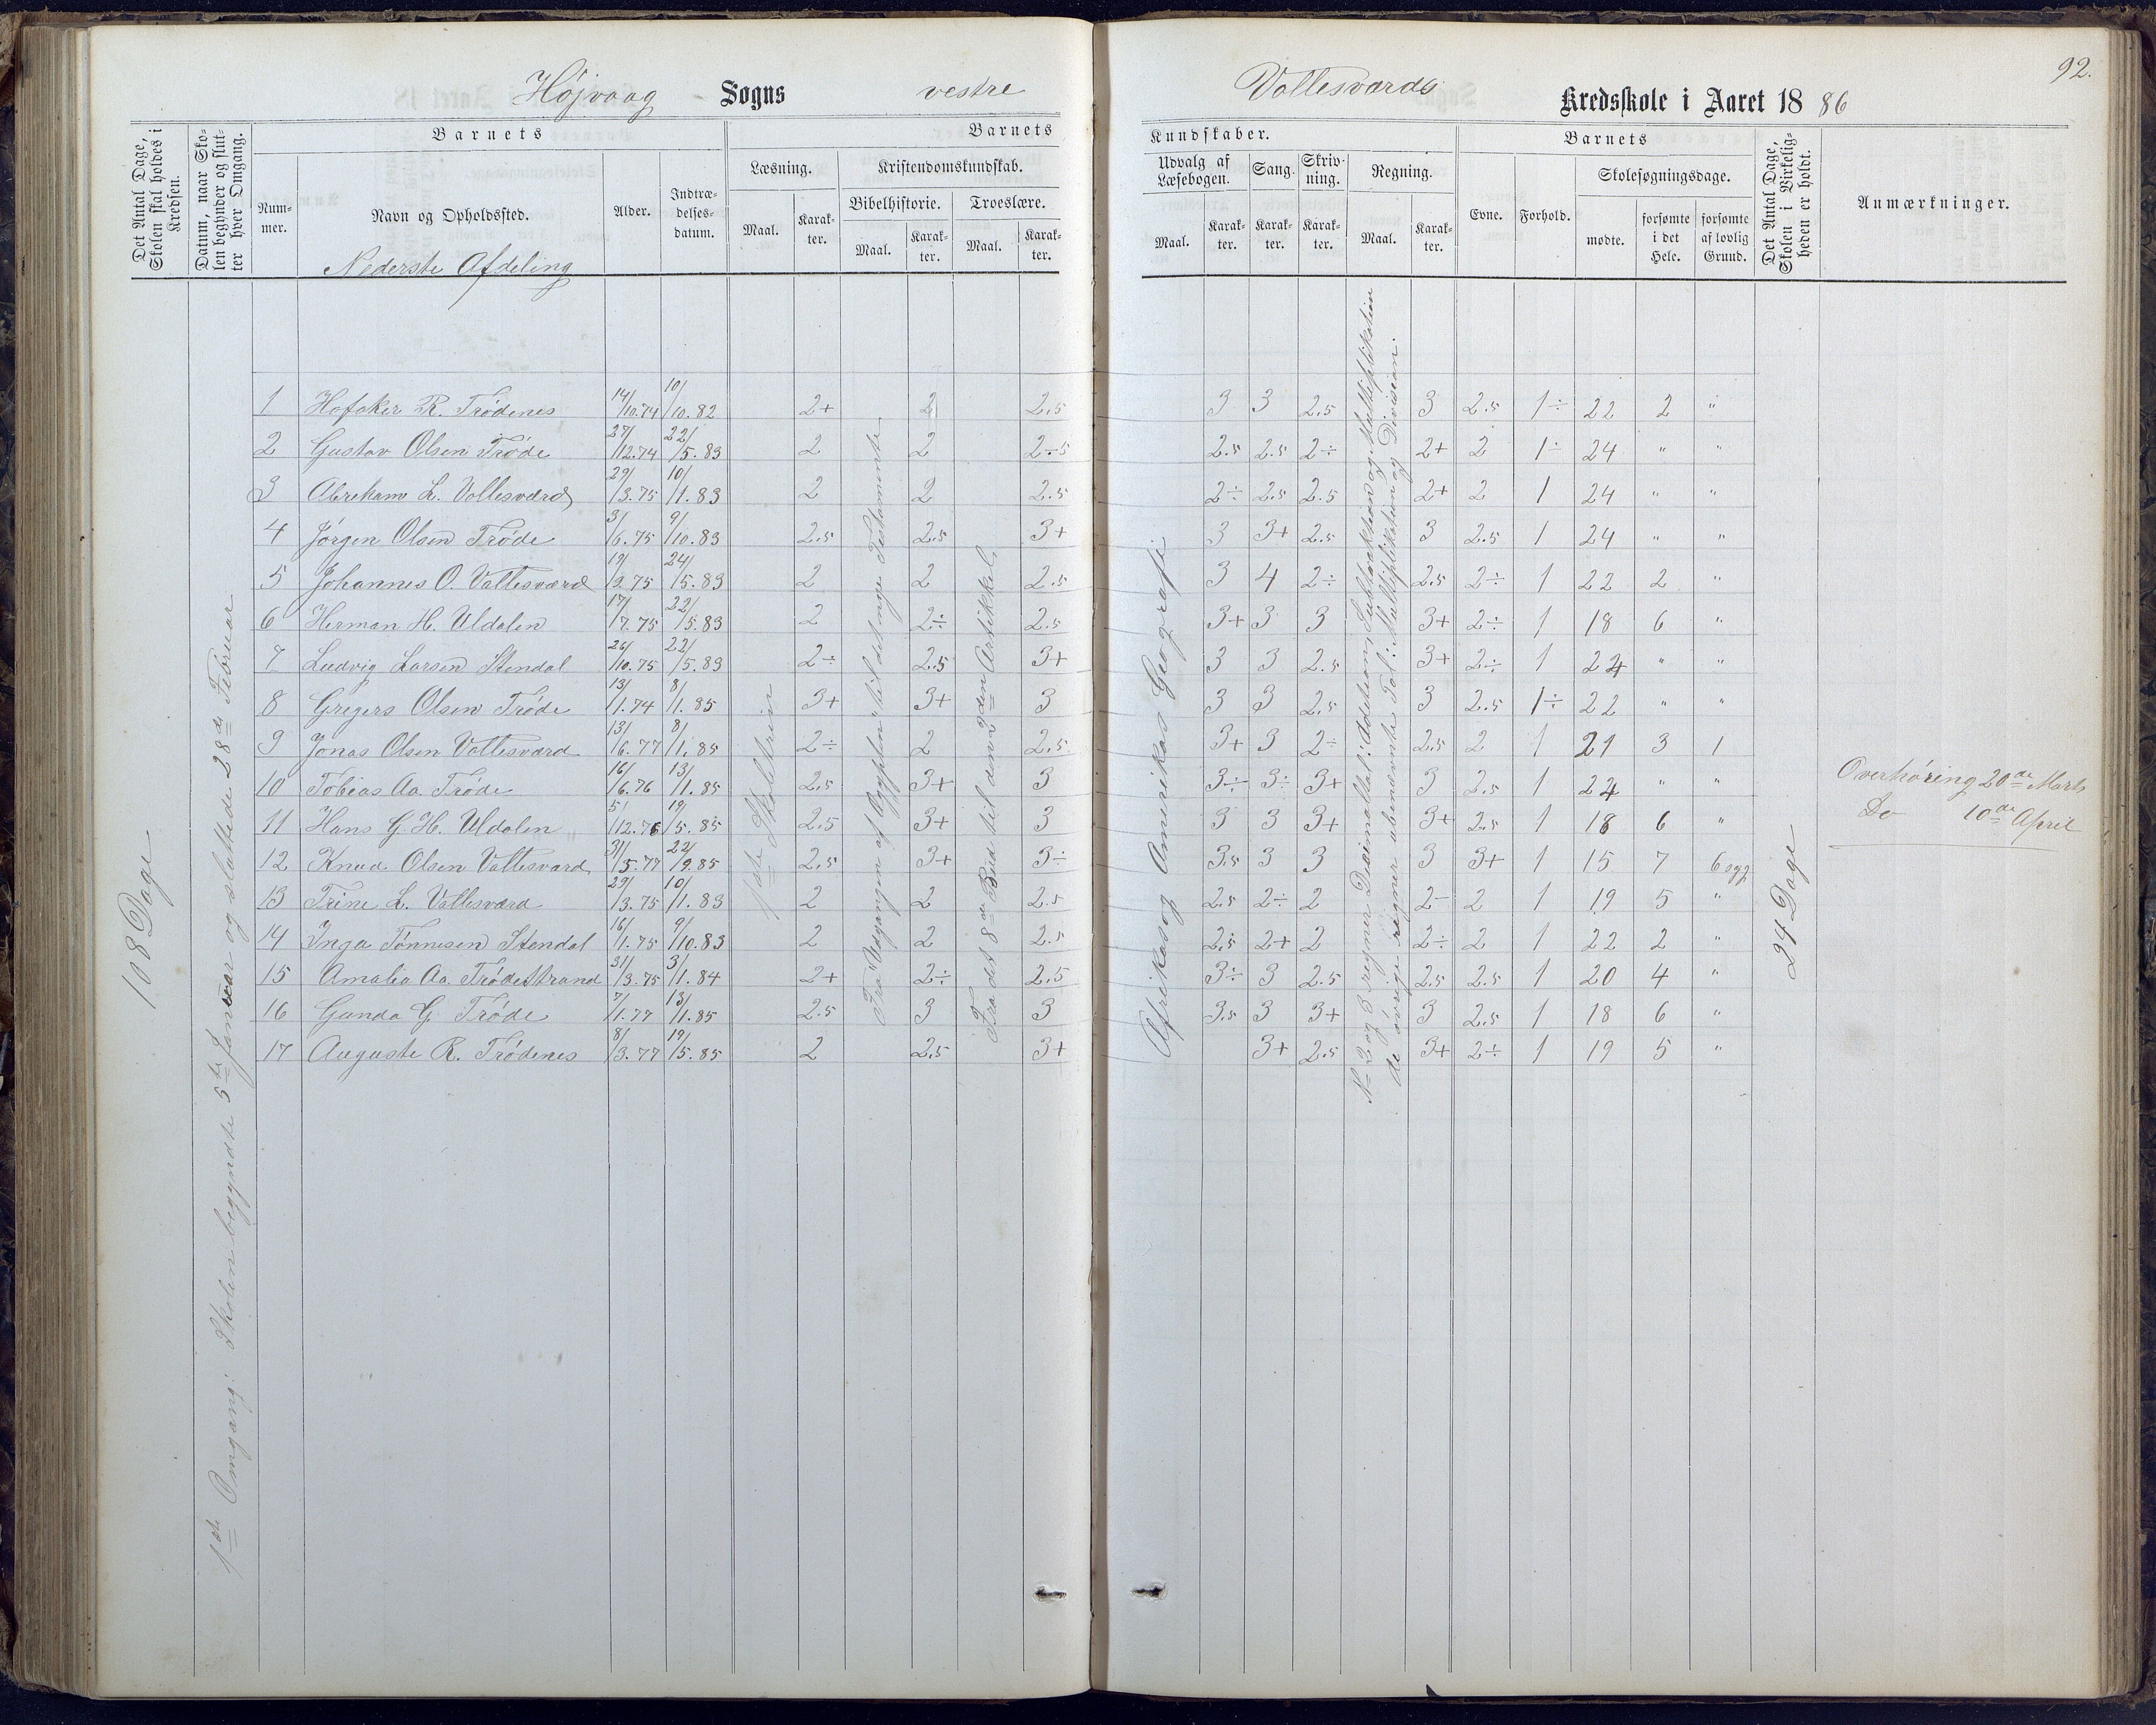 92.
Højvaag Sogns vestre Vallesværds Kredsskole i Aaret 1886
Det Antal Dage, Skolen skal holdes i Kredsen.
Datum, naar Skolen begynder og slutter hver Omgang.
Barnets
Nummer.
Navn og Opholdssted.
Nederste Afdeling
Alder.
Indtrædelsesdatum.
Barnets Kundskaber.
Læsning.
Maal.
Karakter.
Kristendomskundskab.
Bibelhistorie.
Maal.
Karakter.
Troeslære.
Maal.
Karakter.
Udvalg af Læsebogen.
Maal.
Karakter.
Sang.
Karakter.
Skrivning.
Karakter.
Regning.
Maal.
Karakter.
Barnets
Evne.
Forhold.
Skolesøgningsdage.
mødte.
forsømte i det Hele.
forsømte af lovlig Grund.
Det Antal Dage, Skolen i Virkeligheden er holdt.
Anmærkninger.
108 Dage
1ste Omgang: Skolen begyndte 5te Januar og sluttede 28de Februar
1ste Skoletrin
Fra "Udgangen af Ægypten" til det nye Testamente
Fra det 8de Bud til den 2den Artikkel
Afrikas og Amerikas Geografi
No 2 og 3 regner Decimaltal: Addition, Subtraktion og Multiplikation
de øvrige regner ubenævnte Tal: Multiplikation og Division.
1 R. Trødenes 14/10.74 10/10.82 2+ 2 2.5 3 3 2.5 3 2.5 1÷ 22 2 "
2 Gustav Olsen Trøde 27/12.74 22/5.83 2 2 2÷5 2.5 2.5 2÷ 2+ 2 1÷ 24 " "
3 Abrekam L. Vallesværd 29/3.75 10/1.83 2 2 2.5 2÷ 2.5 2.5 2+ 2 1 24 " "
4 Jørgen Olsen Trøde 3/6.75 9/10.83 2.5 2.5 3+ 3 3+ 2.5 3 2.5 1 24 " "
5 Johannes O. Vallesværd 19/9.75 24/5.83 2 2 2.5 3 4 2÷ 2.5 2÷ 1 22 2 "
6 Herman H. Uldalen 17/7.75 22/5.83 2 2÷ 2.5 3+ 3 3 3+ 2÷ 1 18 6 "
7 Ludvig Larsen Stendal 26/10.75 22/5.83 2÷ 2.5 3+ 3 3 2.5 3+ 2÷ 1 24 " "
8 Gregers Olsen Trøde 13/1.74 8/1.85 3+ 3+ 3 3 3 2.5 3 2.5 1÷ 22 " "
9 Jonas Olsen Vallesværd 13/6.77 8/1.85 2÷ 2 2.5 3+ 3 2÷ 2.5 2 1 21 3 1
10 Tobias Aa. Trøde 16/6.76 13/1.85 2.5 3+ 3 3÷ 3÷ 3+ 3 2.5 1 24 " "
11 Hans G. H. Uldalen 5/12.76 19/5.85 2.5 3+ 3 3 3 3+ 3+ 2.5 1 18 6 "
12 Knud Olsen Vallesværd 31/5.77 22/9.85 2.5 3+ 3÷ 3.5 3 3 3 3+ 1 15 7 6 syg
13 Trine L. Vallesværd 29/3.75 10/1.83 2 2 2.5 2.5 2÷ 2 2- 2 1 19 5 "
14 Inga Tønnesen Stendal 16/1.75 9/10.83 2 2 2.5 2.5 2+ 2 2÷ 2 1 22 2 "
15 Amalia Aa. Trødestrand 31/3.75 3/1.84 2+ 2÷ 2.5 3÷ 3 2.5 2.5 2.5 1 20 4 "
16 Gunda G. Trøde 7/1.77 13/1.85 2.5 3 3 3.5 3 3+ 3 2.5 1 18 6 "
17 Auguste R. Trødenes 8/3.77 19/5.85 2 2.5 3+ 3+ 2.5 3+ 2÷ 1 19 5 "
24 Dage
Overhøring 20de Marts
Do 10de April